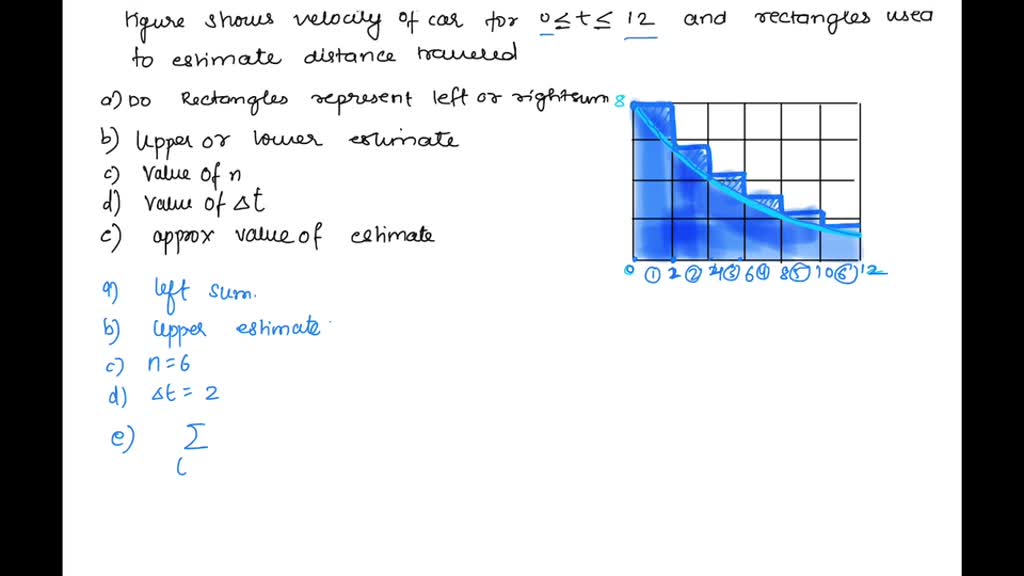 figure shows velocity of car for 0 ≤ t ≤ 12 and rectangles used
to estimate distance traveled
a) Do Rectangles represent left or right sum
b) Upper or lower estimate
c) Value of n
d) Value of Δt
e) approx value of estimate
a) left sum.
b) Upper estimate
c) n = 6
d) Δt = 2
e) Σ
(
8
0 ① 2 ② 4 ③ 6 ④ 8 ⑤ 10 ⑥ 12